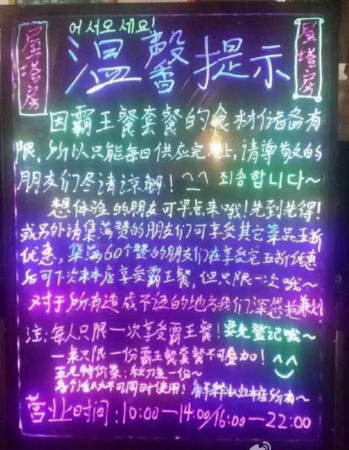 어서오세요!
屋塔房
温馨提示
屋塔房
因霸王餐套餐的食材储备有
限,所以只能每日供应完为止,请尊敬的
朋友们尽请凉解!^^ 죄송합니다~
想体验的朋友可早点来哦!先到先得!
或另外请集满赞的朋友们可享受其它菜品五折
优惠,集满60个赞的朋友们在享受完五折优惠
后可下次来本店享受霸王餐,但只限一次哦~
对于所有造成不便的地方我们深感抱歉
注:每人只限一次享受霸王餐!要先登记哦~
一桌只限一份霸王餐套餐不可叠加! ^^
五元特价菜:秋刀鱼一份~
不可同时使用!
营业时间:10:00-14:00/16:00-22:00